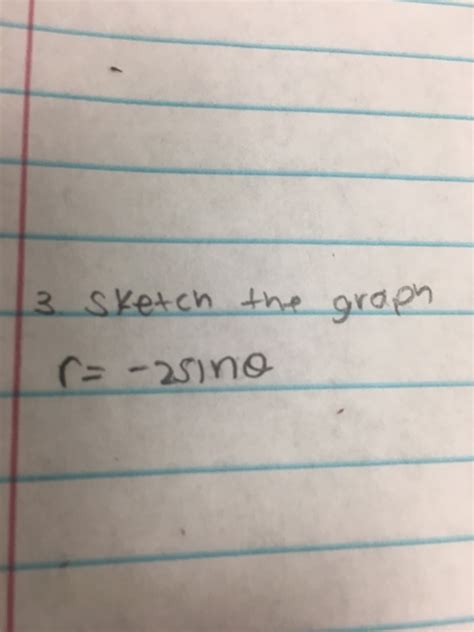 3. Sketch the graph
r= -2sinθ